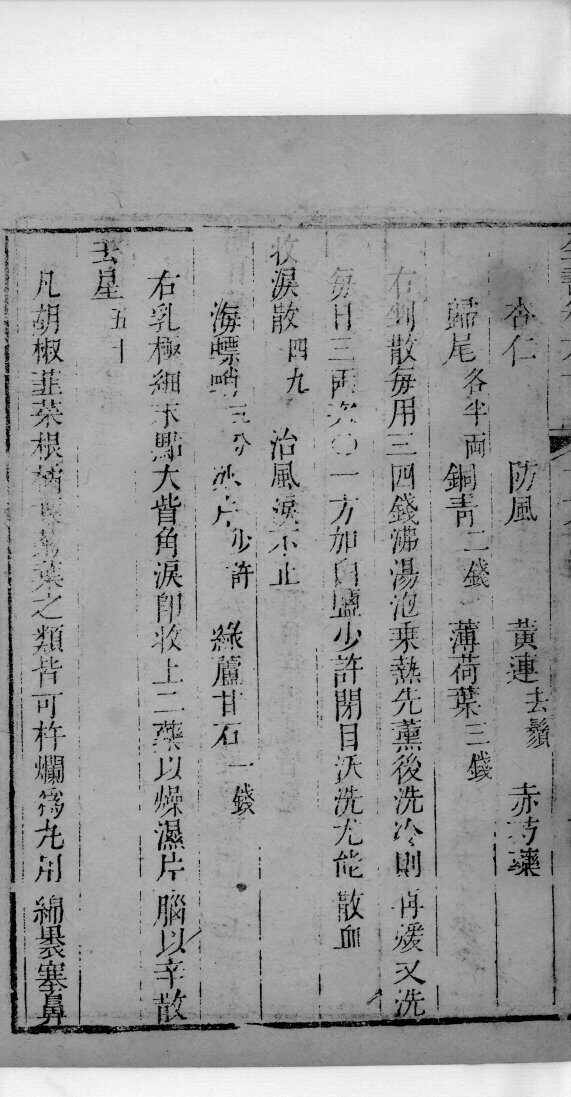 杏仁 防風 黃連去鬚 赤芍藥
歸尾各半両 銅青二錢 薄荷葉三錢
右剉散每用三四錢沸湯泡乘熱先薰後洗冷則再煖又洗
每日三両次〇一方加白鹽少許閉目沃洗尤能散血
收淚散四九 治風淚不止
海螵蛸三分 氷片少許 綠蘆甘石一錢
右乳極細末點大眥角淚即收上二藥以燥濕片腦以辛散
去星五十
凡胡椒韮菜根橘葉菊葉之類皆可杵爛爲丸用綿裂塞鼻